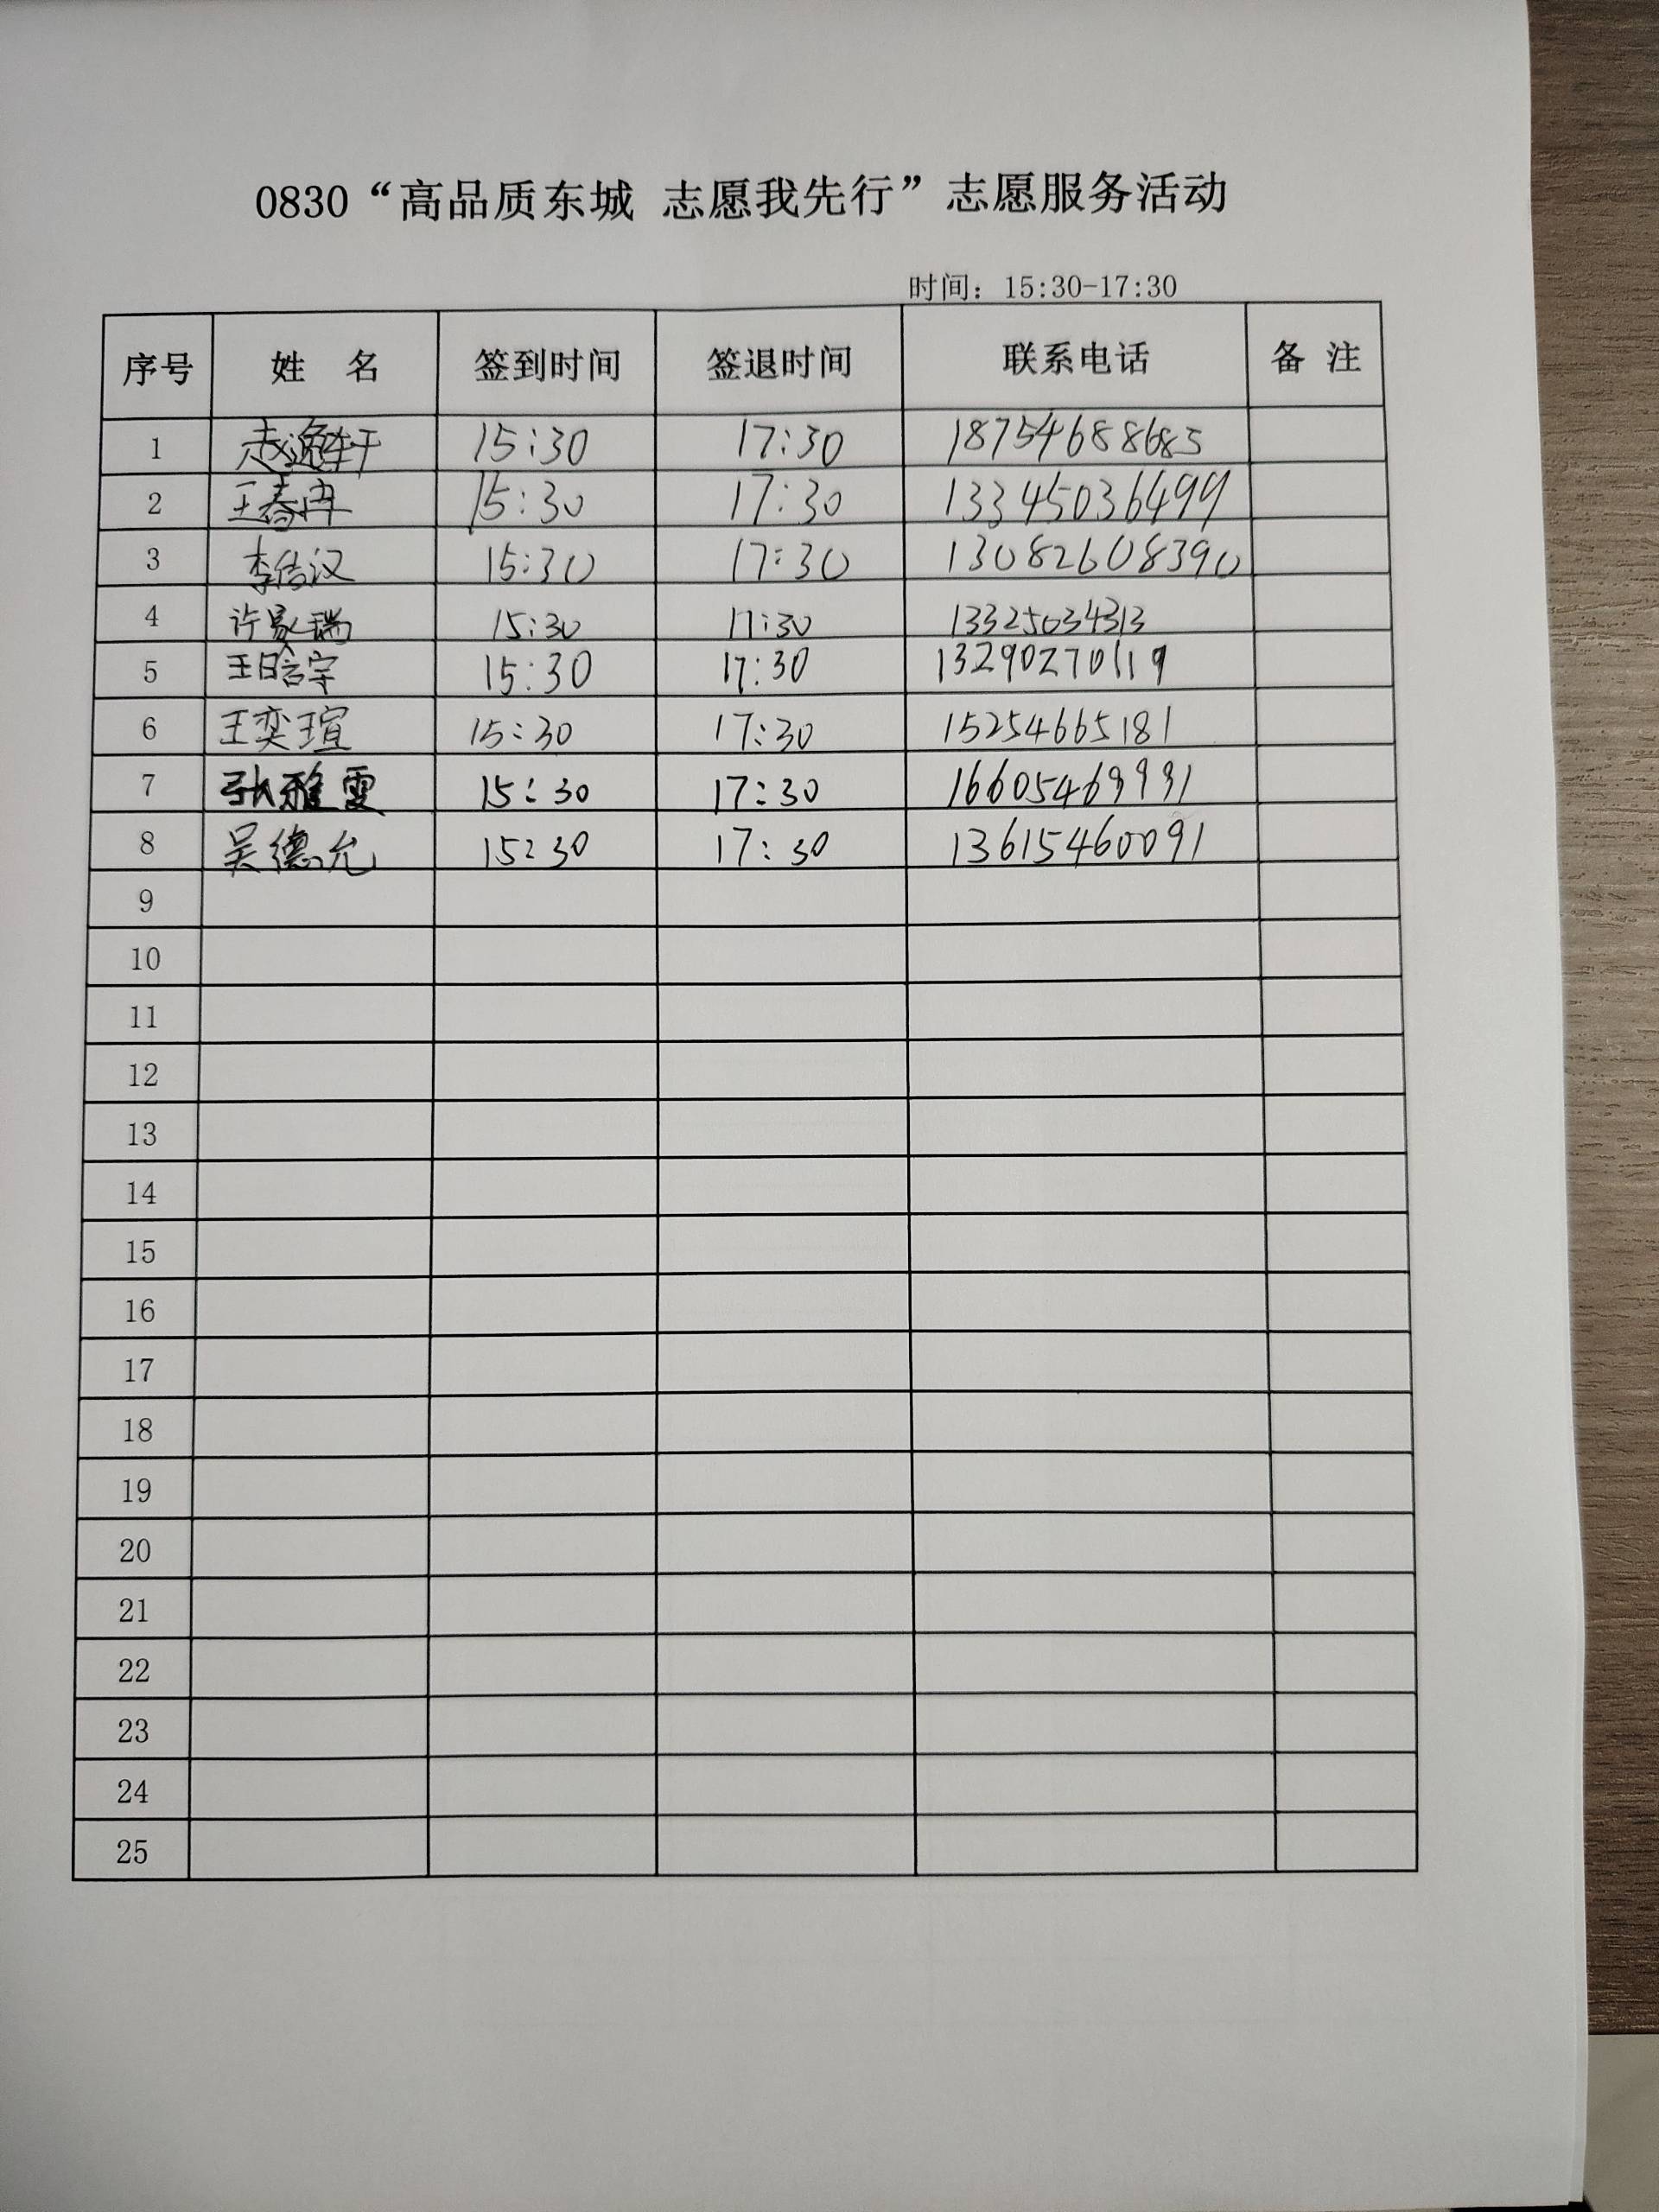 0830“高品质东城 志愿我先行”志愿服务活动
时间：15:30-17:30
序号 姓 名 签到时间 签退时间 联系电话 备 注
1 赵逸轩 15:30 17:30 18754688685
2 王春冉 15:30 17:30 13345036499
3 李信汉 15:30 17:30 13082608390
4 许家瑞 15:30 17:30 13325034313
5 王晗宇 15:30 17:30 13290270119
6 王奕瑄 15:30 17:30 15254665181
7 张雅雯 15:30 17:30 16605469991
8 吴德允 15:30 17:30 13615460091
9
10
11
12
13
14
15
16
17
18
19
20
21
22
23
24
25